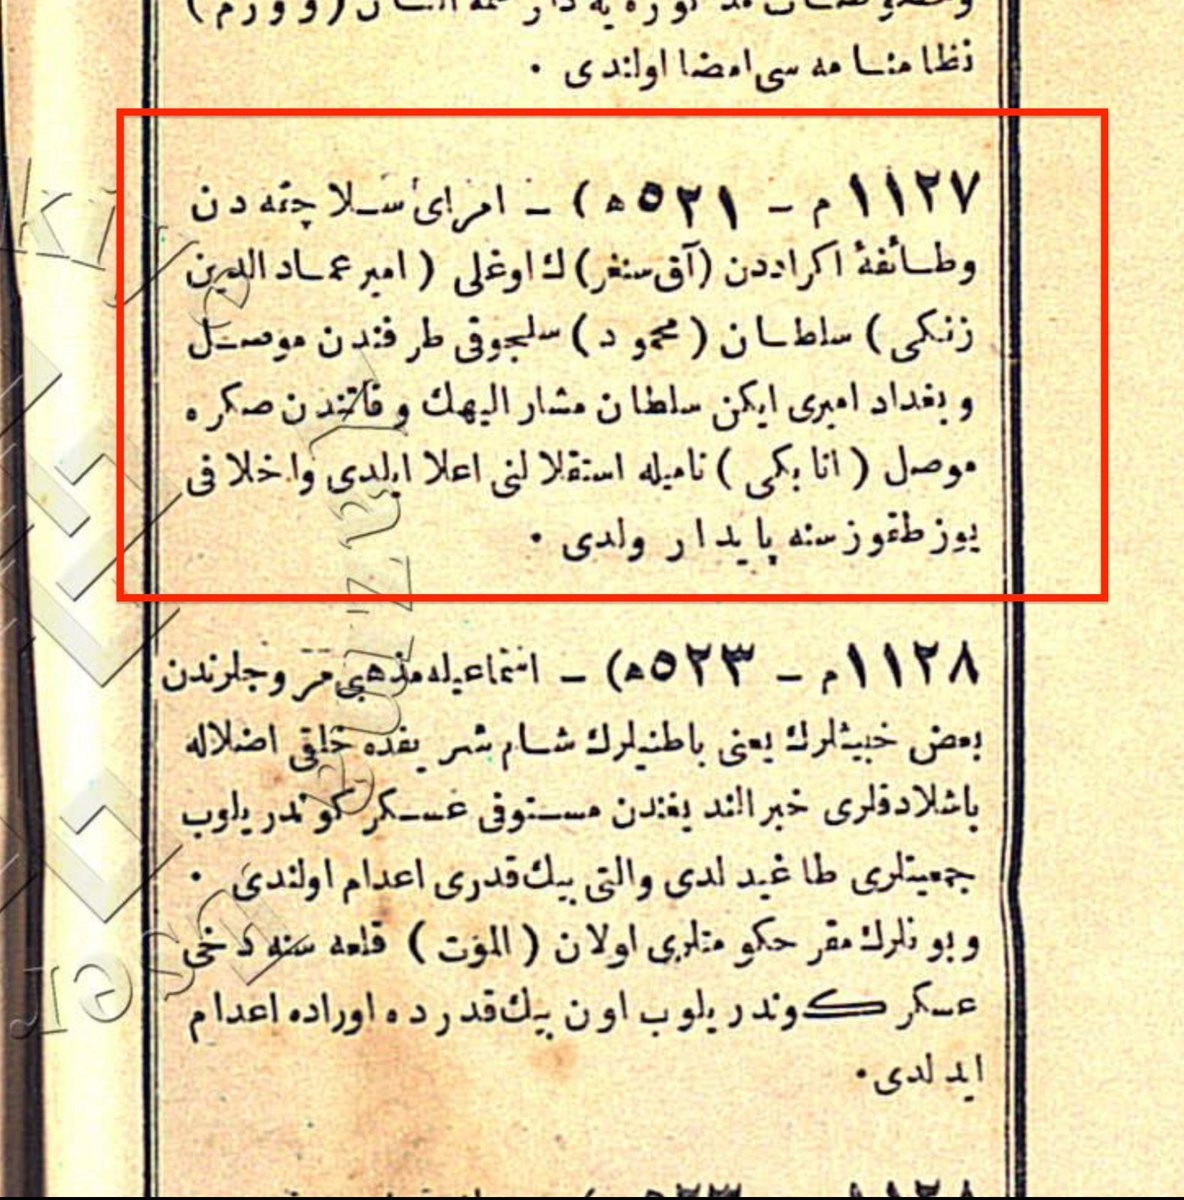 نظامنامه سی امضا اولندی ·
١١٢٧ م – ٥٢١ ه) – امرای سلاجقه دن
وطائفهٔ اکراددن (آق سنغر) ك اوغلی ( امیر عماد الدین
زنکی ) سلطان ( محمود ) سلجوقی طرفندن موصل
و بغداد امیری ایکن سلطان مشار الیهك وفاتندن صکره
موصل ( اتابکی ) نامیله استقلالنی اعلا ایلدی واخلافی
یوز طقوز سنه پایدار ولدی ·
١١٢٨ م – ٥٢٣ ه) – اسماعیله مذهبی مروجلرندن
بعض خبیثلرك یعنی باطنیلرك شام شریفده خلقی اضلاله
باشلادقلری خبر الندیغندن مستوفی عسکر کوندریلوب
جمعیتلری طاغیدلدی والتی بیك قدری اعدام اولندی ·
و بونلرك مقر حکومتلری اولان ( الموت ) قلعه سنه دخی
عسکر کوندریلوب اون بیك قدر ده اوراده اعدام
ایدلدی ·